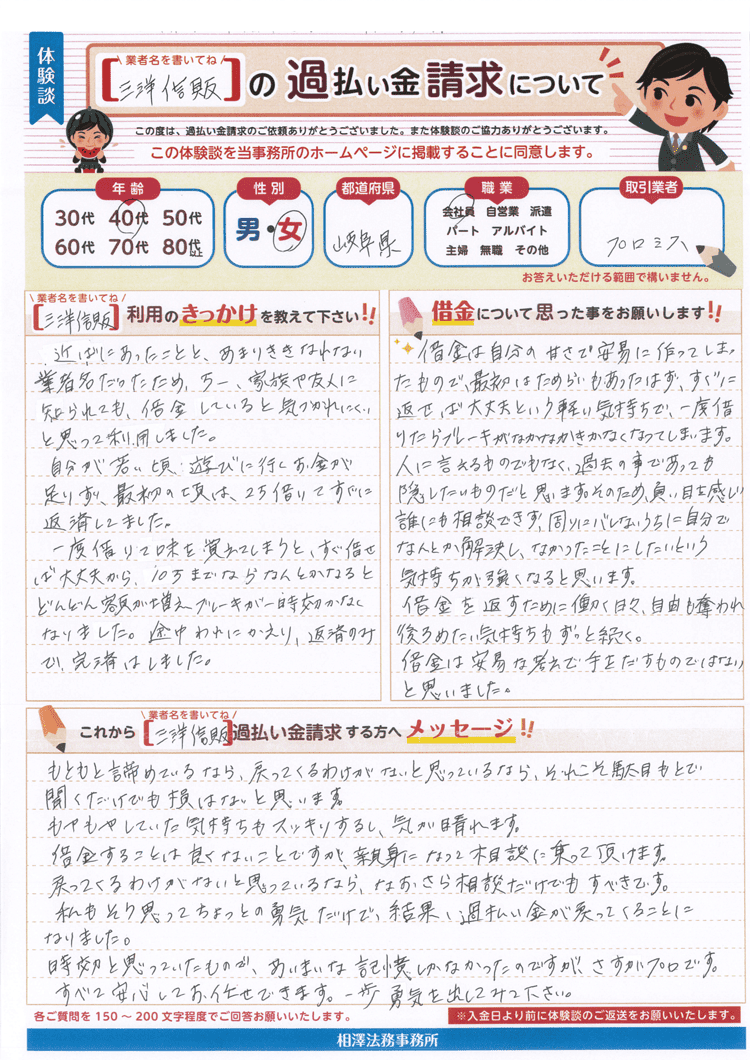 体験談
業者名を書いてね
[三洋信販]の過払い金請求について
この度は、過払い金請求のご依頼ありがとうございました。また体験談のご協力ありがとうございます。
この体験談を当事務所のホームページに掲載することに同意します。
年齢
30代 40代 50代
60代 70代 80代以上
性別
男・女
都道府県
岐阜県
職業
会社員 自営業 派遣
パート アルバイト
主婦 無職 その他
取引業者
プロミス
お答えいただける範囲で構いません。
業者名を書いてね
[三洋信販]利用のきっかけを教えて下さい!!
近ばにあったことと、あまりききなれない
業者名だったため、万一、家族や友人に
知られても、借金していると気づかれにくい
と思って利用しました。
自分が若い頃、遊びに行くお金が
足りず、最初の頃は、2万借りてすぐに
返済してました。
一度借りて味を覚えてしまうと、すぐ借せ
ば大丈夫から、10万までならなんとかなると
どんどん額が増えブレーキが一時効かなく
なりました。途中われにかえり、返済のみ
で、完済はしました。
借金について思った事をお願いします!!
借金は自分の甘さで安易に作ってしまっ
たもので、最初はためらいもあったはず、すぐに
返せば大丈夫という軽い気持ちで、一度借
りたらブレーキがなかなかきかなくなってしまいます。
人に言えるものでもなく、過去の事であっても
隠したいものだと思います。そのため、負い目を感じ
誰にも相談できず、周りにバレないうちに自分で
なんとか解決し、なかったことにしたいという
気持ちが強くなると思います。
借金を返すために働く日々、自由も奪われ
後ろめたい気持ちもずっと続く。
借金は安易な考えで手をだすものではない
と思いました。
業者名を書いてね
これから[三洋信販]過払い金請求する方へメッセージ!!
もともと諦めているなら、戻ってくるわけがないと思っているなら、それこそ駄目もとで
聞くだけでも損はないと思います。
もやもやしていた気持ちもスッキリするし、気が晴れます。
借金することは良くないことですが、親身になって相談に乗って頂けます。
戻ってくるわけがないと思っているなら、なおさら相談だけでもすべきです。
私もそう思ってちょっとの勇気だけで、結果、過払い金が戻ってくることに
なりました。
時効と思っていたもので、あいまいな記憶しかなかったのですが、さすがプロです。
すべて安心してお任せできます。一歩勇気を出してみて下さい。
各ご質問を150～200文字程度でご回答お願いいたします。
※入金日より前に体験談のご返送をお願いいたします。
相澤法務事務所